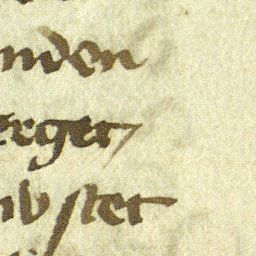 nden
erger
nv ster